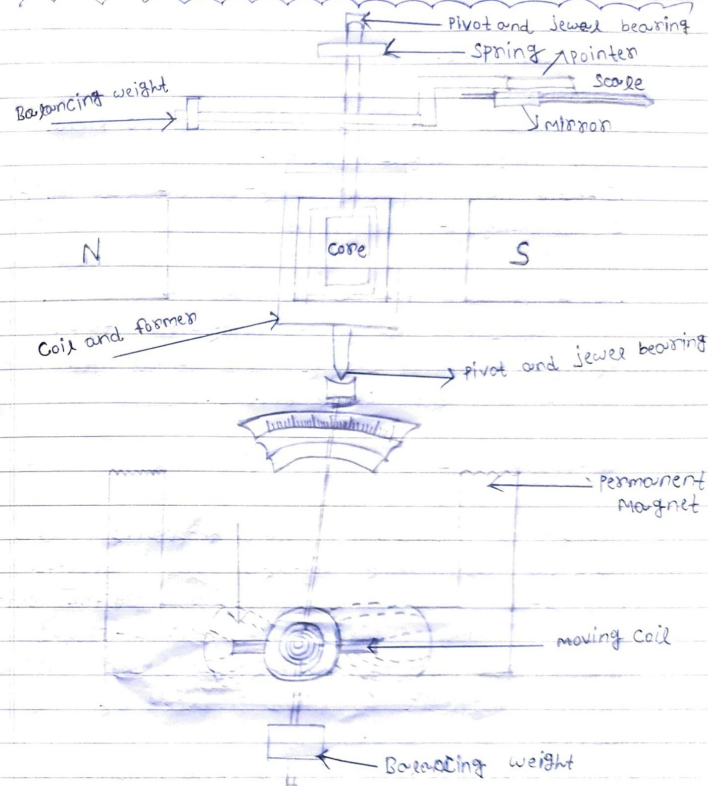 Pivot and jewel bearing
Spring
pointer
Balancing weight
Scale
Mirror
N
core
S
Coil and former
pivot and jewel bearing
permanent
Magnet
moving coil
Balancing weight